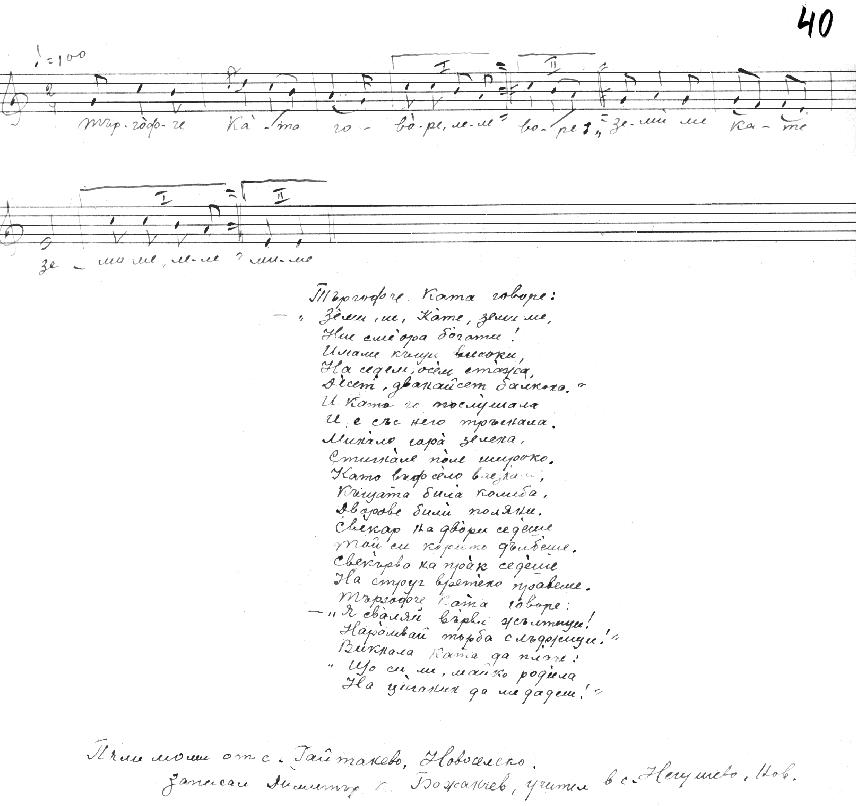 40
♩=100
I II
Търгофче Ката го- воре, ле-ле воре: „Земи ме Ка-те
I II
зе - ми ме, ле-ле ми-ме
Търгофче Ката говоре:
— „Земи ме, Кате, земи ме,
Ние сме ора богати!
Имаме къщи високи,
На седем, осем етажа,
Десет, дванайсет балкона."
И Ката го послушала
И с със него тръгнала.
Минале гора зелена,
Стигнале поле широко.
Като в село
Къщата била колиба,
Дворове били поляни.
Свекар на двори седеше
Той си корито дълбеше.
Свекърва на прак седеше
На струг вретено правеше.
Търгофче Ката говоре:
— „Я сваляй върви жълтици!
Нарамвай търба!"
Викнала Ката да плаче:
„Що си ме, майко родила
На циганин да ме дадеш!"
Пели моми от с. Гайтанево, Новоселско.
Записал Димитър К. Божанчев, учител в с. Негушево, Нов.